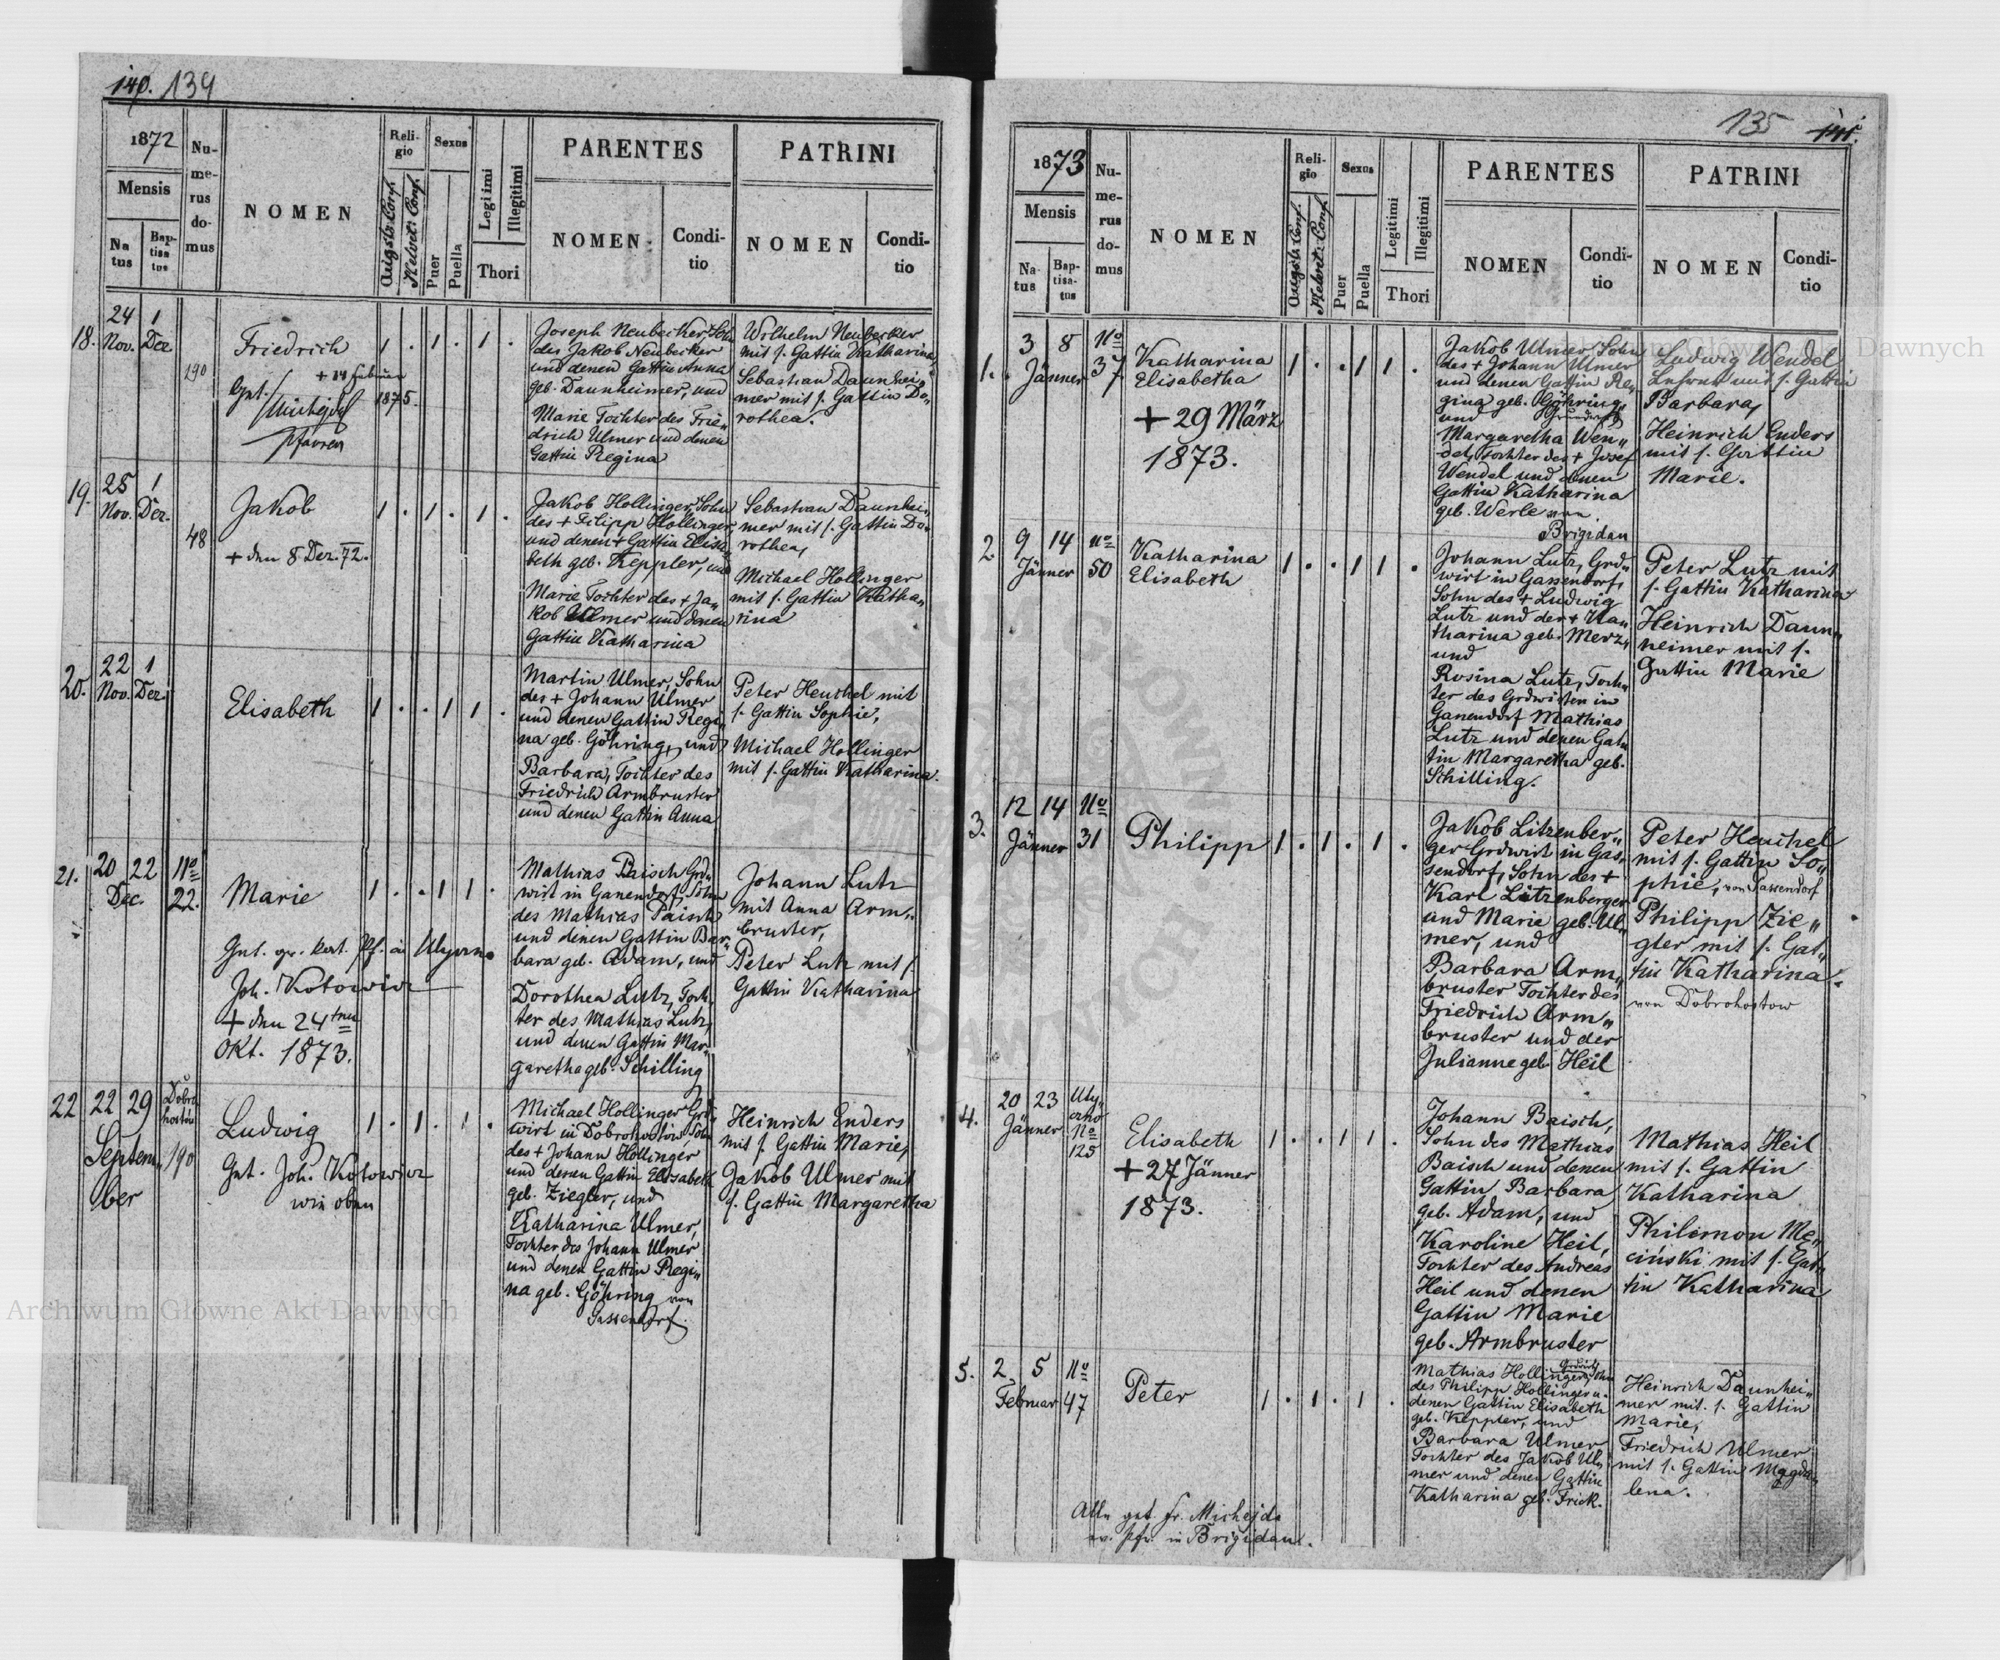 140. 134
1872
Mensis
Na
tus
Bap-
tisa
tus
Nu-
me-
rus
do-
mus
NOMEN
Reli-
gio
Augsb. Conf.
Helvet. Conf.
Sexus
Puer
Puella
Legitimi
Illegitimi
Thori
PARENTES
NOMEN
Condi-
tio
PATRINI
NOMEN
Condi-
tio
18. 24 1
Nov. Dez
190
Friedrich
+ 14 Februar
1875.
Get.
Michejda
Pfarrer
1 . 1 . 1 .
Joseph Neubecker, Sohn
des Jakob Neubecker
und denen Gattin Anna
geb. Daunheimer, und
Marie Tochter des Frie„
drich Ulmer und denen
Gattin Regina
Wilhelm Neubecker
mit s. Gattin Katharina
Sebastian Daunhei„
mer mit s. Gattin Do„
rothea.
19. 25 1
Nov. Dez.
48
Jakob
+ den 8 Dez. 72.
1 . 1 . 1 .
Jakob Hollinger, Sohn
des + Filipp Hollinger,
und denen + Gattin Elisa„
beth geb. Keppler, und
Marie Tochter des + Ja„
kob Ulmer und denen
Gattin Katharina
Sebastian Daunhei„
mer mit s. Gattin Do„
rothea,
Michael Hollinger
mit s. Gattin Katha„
rina
20. 22 1
Nov. Dez.
Elisabeth
1 . . 1 1 .
Martin Ulmer, Sohn
des + Johann Ulmer
und denen Gattin Regi„
na geb. Göhring, und
Barbara, Tochter des
Friedrich Armbruster
und denen Gattin Anna
Peter Heuchel mit
s. Gattin Sophie,
Michael Hollinger
mit s. Gattin Katharina.
21. 20 22 No
Dec. 22.
Marie
Get. gr. kat. Pf. in Ulyczno
Joh. Kotowicz
+ den 24ten
Okt. 1873.
1 . . 1 1 .
Mathias Baisch Grd„
wirt in Gassendorf, Sohn
des Mathias Baisch
und denen Gattin Bar„
bara geb. Adam, und
Dorothea Lutz, Toch„
ter des Mathias Lutz,
und denen Gattin Mar„
garetha geb. Schilling
Johann Lutz
mit Anna Arm„
bruster,
Peter Lutz mit s.
Gattin Katharina
22 22 29
Septem„
ber
Dobro
hostów
190
Ludwig
Get. Joh. Kotowicz
wie oben
1 . 1 . 1 .
Michael Hollinger Grd„
wirt in Dobrohostów, Sohn
des + Johann Hollinger
und denen Gattin Elisabeth
geb. Ziegler, und
Katharina Ulmer,
Tochter des Johann Ulmer
und denen Gattin Regi„
na geb. Göhring von
Gassendorf.
Heinrich Enders
mit s. Gattin Marie,
Jakob Ulmer mit
s. Gattin Margaretha
Archiwum Główne Akt Dawnych
135 141.
1873
Mensis
Na-
tus
Bap-
tisa-
tus
Nu-
me-
rus
do-
mus
NOMEN
Reli-
gio
Augsb. Conf.
Helvet. Conf.
Sexus
Puer
Puella
Legitimi
Illegitimi
Thori
PARENTES
NOMEN
Condi-
tio
PATRINI
NOMEN
Condi-
tio
Archiwum Główne Akt Dawnych
1. 3 8 No
Jänner 37
Katharina
Elisabetha
+ 29 März
1873.
1 . . 1 1 .
Jakob Ulmer, Sohn
des + Johann Ulmer
und denen Gattin Re„
gina geb. Göhring,
und
Margaretha Wen„
del, Tochter des + Josef
Wendel und denen
Gattin Katharina
geb. Werle von
Brigidau
Ludwig Wendel
Lehrer mit s. Gattin
Barbara,
Heinrich Enders
mit s. Gattin
Marie.
2. 9 14 No
Jänner 50
Katharina
Elisabeth
1 . . 1 1 .
Johann Lutz, Grd„
wirt in Gassendorf,
Sohn des + Ludwig
Lutz und der + Ka„
tharina geb. Merz,
und
Rosina Lutz, Toch„
ter des Grdwirten in
Gassendorf Mathias
Lutz und denen Gat„
tin Margaretha geb.
Schilling.
Peter Lutz mit
s. Gattin Katharina
Heinrich Daun„
heimer mit s.
Gattin Marie
3. 12 14 No
Jänner 31
Philipp
1 . 1 . 1 .
Jakob Litzenber„
ger Grdwirt in Gas„
sendorf, Sohn des +
Karl Litzenberger
und Marie geb. Ul„
mer, und
Barbara Arm„
bruster Tochter des
Friedrich Arm„
bruster und der
Julianne geb. Heil
Peter Heuchel
mit s. Gattin So„
phie, von Gassendorf
Philipp Zie„
gler mit s. Gat„
tin Katharina
von Dobrohostow
4. 20 23 Uly„
Jänner czno
No
125
Elisabeth
+ 27 Jänner
1873.
1 . . 1 1 .
Johann Baisch,
Sohn des Mathias
Baisch und denen
Gattin Barbara
geb. Adam, und
Karoline Heil,
Tochter des Andreas
Heil und denen
Gattin Marie
geb. Armbruster
Mathias Heil
mit s. Gattin
Katharina
Philimon Me„
ciński mit s. Gat„
tin Katharina
5. 2 5 No
Februar 47
Peter
1 . 1 . 1 .
Mathias Hollinger, Sohn
des Philipp Hollinger u.
denen Gattin Elisabeth
geb. Keppler, und
Barbara Ulmer
Tochter des Jakob Ul„
mer und denen Gattin
Katharina geb. Frick.
Heinrich Daunhei„
mer mit s. Gattin
Marie,
Friedrich Ulmer
mit s. Gattin Magda„
lena.
Alle get. Fr. Michejda
ev. Pfr. in Brigidau.